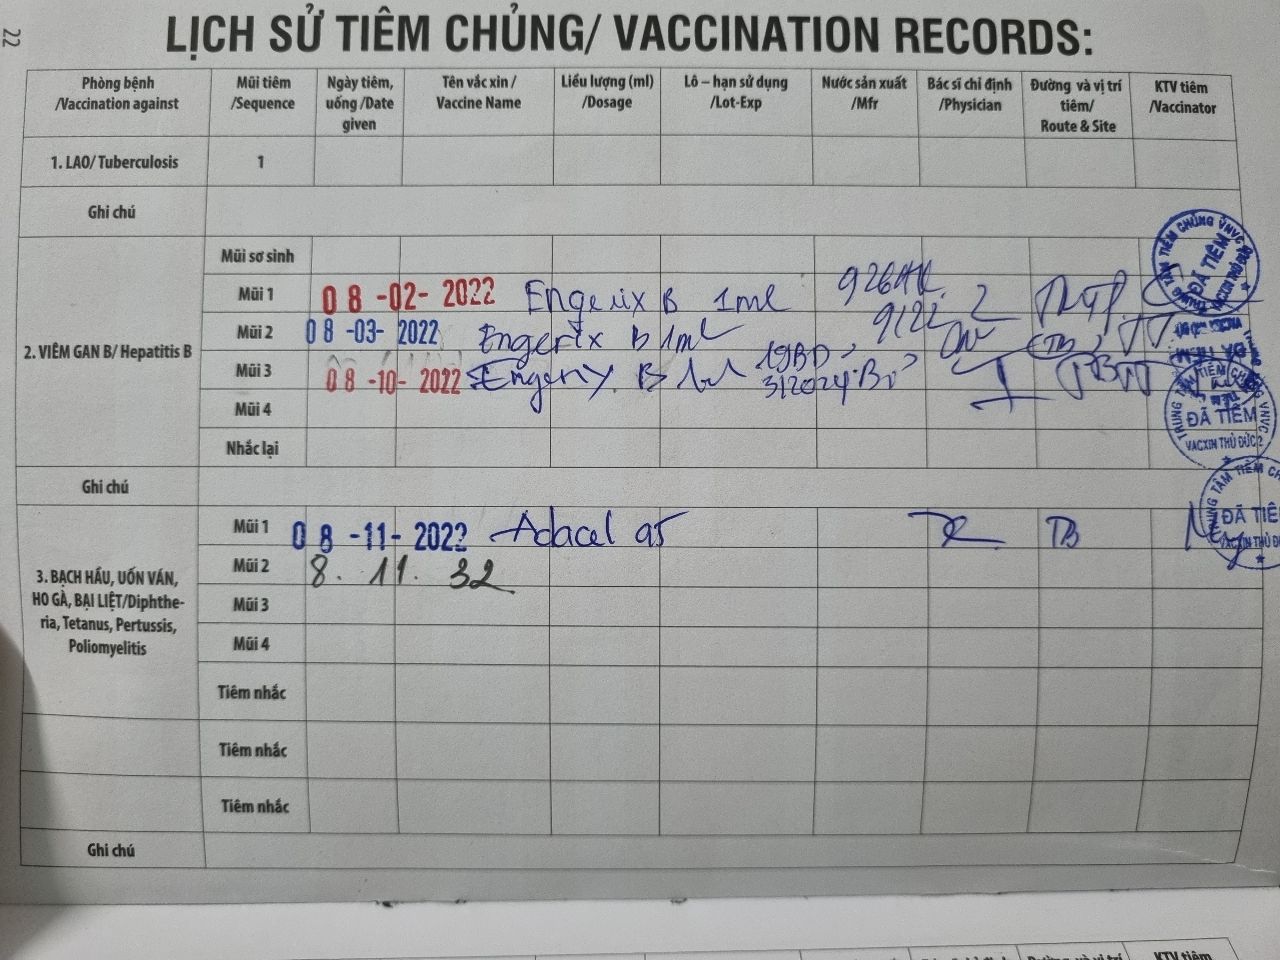 22
LỊCH SỬ TIÊM CHỦNG/ VACCINATION RECORDS:
Phòng bệnh /Vaccination against
Mũi tiêm /Sequence
Ngày tiêm, uống /Date given
Tên vắc xin / Vaccine Name
Liều lượng (ml) /Dosage
Lô – hạn sử dụng /Lot-Exp
Nước sản xuất /Mfr
Bác sĩ chỉ định /Physician
Đường và vị trí tiêm/ Route & Site
KTV tiêm /Vaccinator
1. LAO/ Tuberculosis 1
Ghi chú
2. VIÊM GAN B/ Hepatitis B
Mũi sơ sinh
Mũi 1 08-02-2022 Engerix B 1ml
Mũi 2 08-03-2022 Engerix B 1ml
Mũi 3 08-10-2022 B 3/2024
Mũi 4
Nhắc lại
Ghi chú
3. BẠCH HẦU, UỐN VÁN,
HO GÀ, BẠI LIỆT/Diphthe-
ria, Tetanus, Pertussis,
Poliomyelitis
Mũi 1 08-11-2022 Adacel TB
Mũi 2 8. 11. 32
Mũi 3
Mũi 4
Tiêm nhắc
Tiêm nhắc
Tiêm nhắc
Ghi chú
ĐÃ TIÊM
ĐÃ TIÊM
TRUNG TÂM TIÊM CHỦNG VNVC
ĐÃ TIÊM
VACXIN THỦ ĐỨC 2
TRUNG TÂM TIÊM
ĐÃ TIÊ
VACXIN THỦ
Đường và vị trí
KTV tiêm